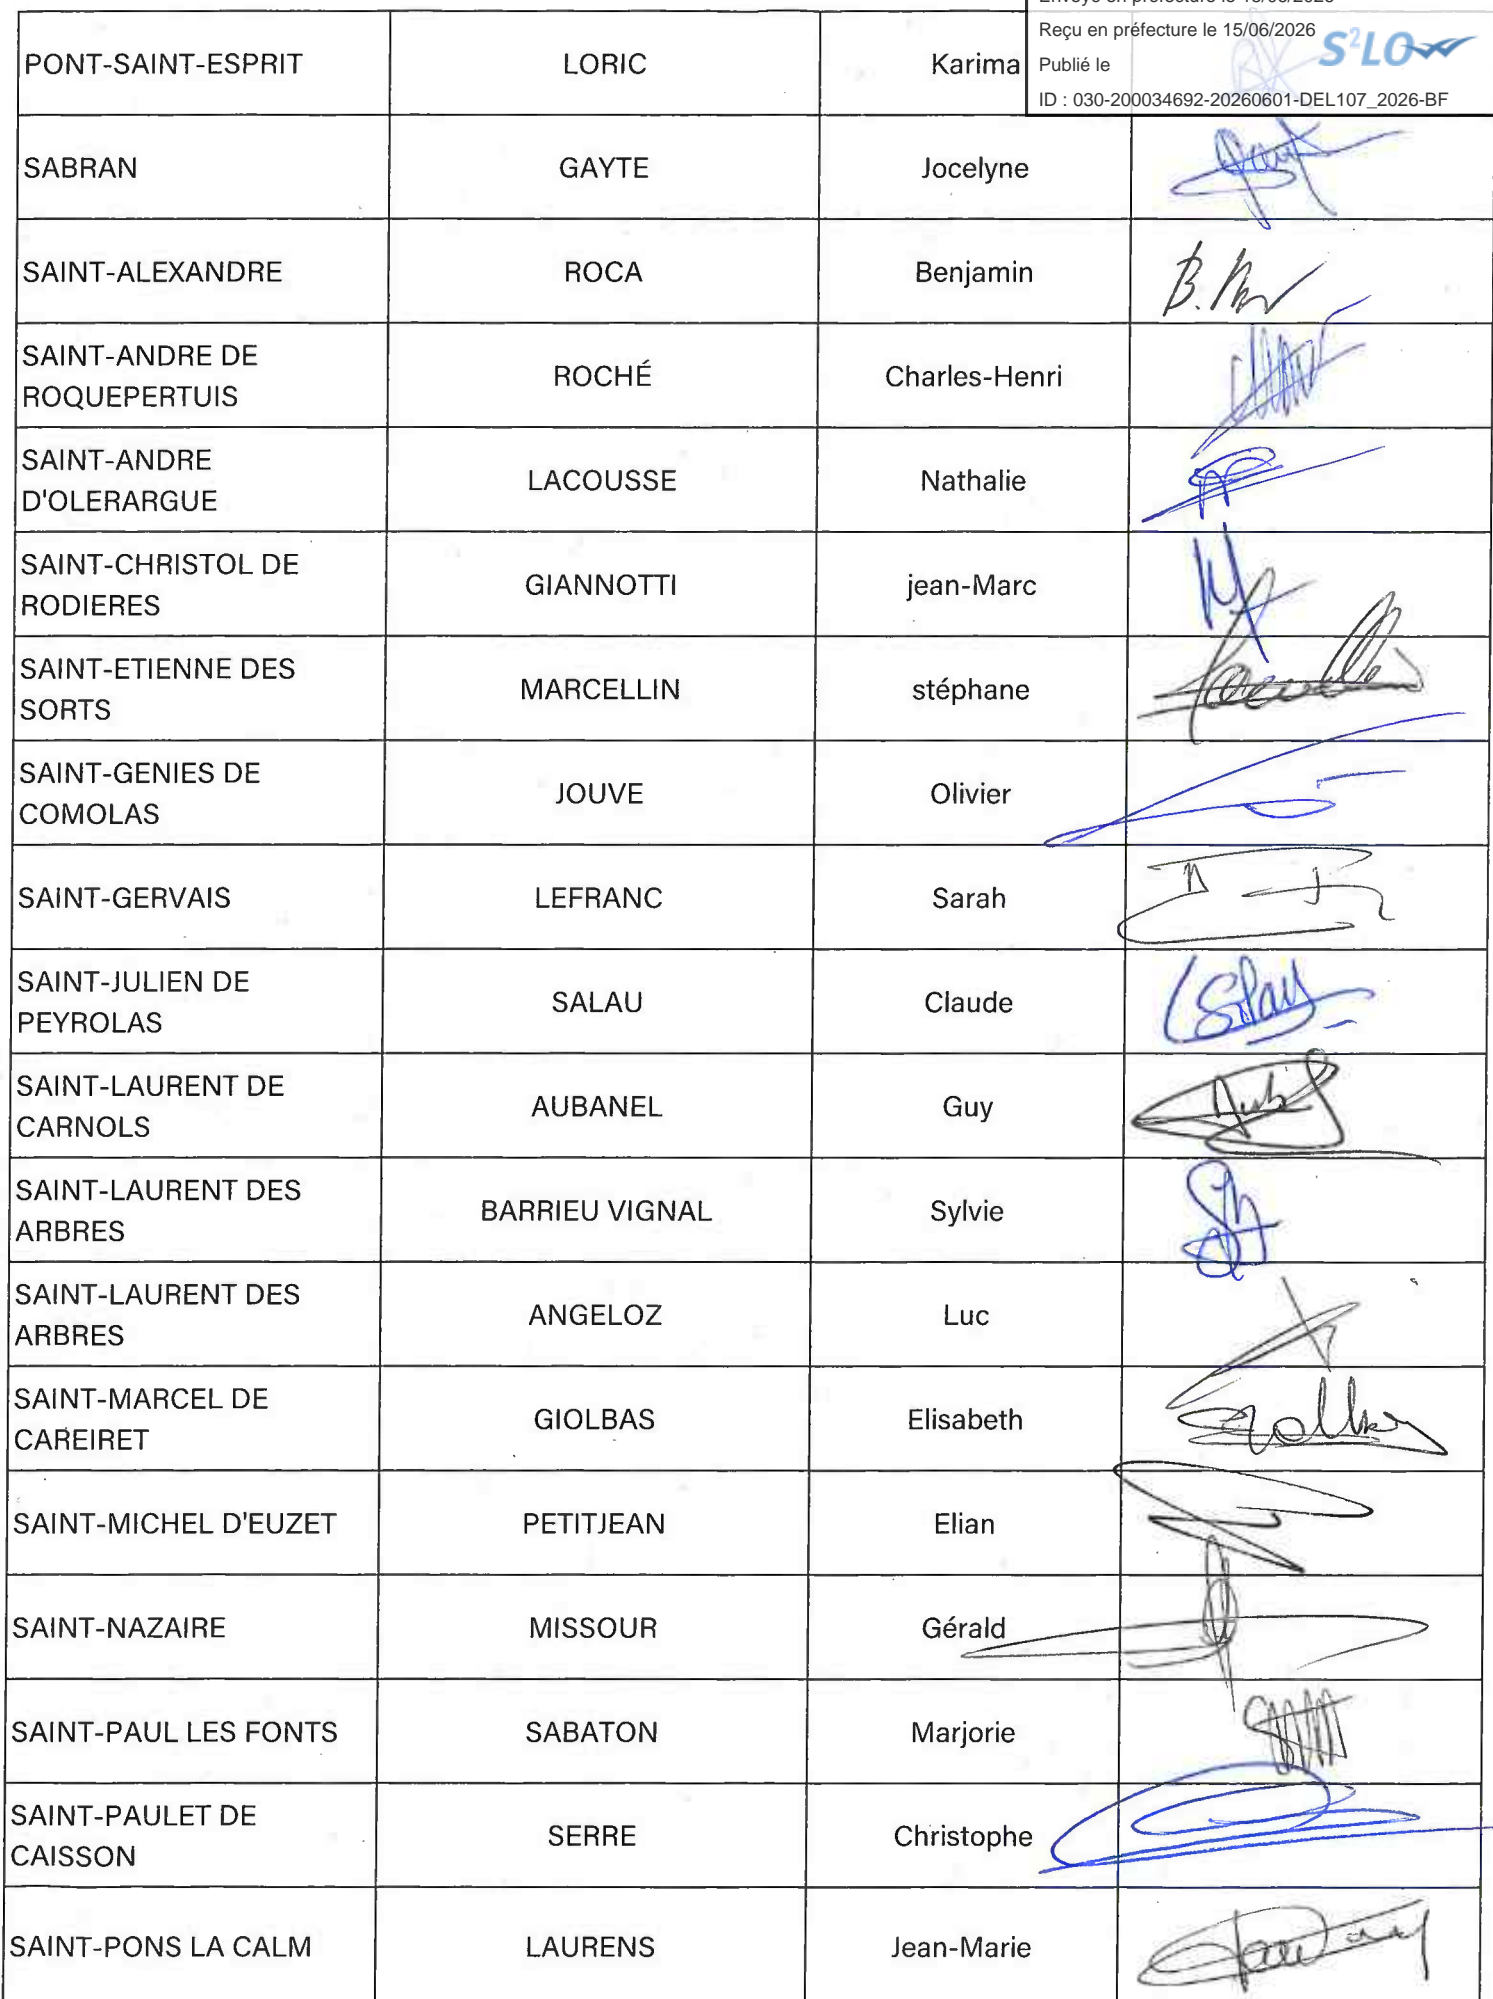 Reçu en préfecture le 15/06/2026
Publié le
S²LO
ID : 030-200034692-20260601-DEL107_2026-BF
PONT-SAINT-ESPRIT LORIC Karima
SABRAN GAYTE Jocelyne
SAINT-ALEXANDRE ROCA Benjamin
SAINT-ANDRE DE
ROQUEPERTUIS ROCHÉ Charles-Henri
SAINT-ANDRE
D'OLERARGUE LACOUSSE Nathalie
SAINT-CHRISTOL DE
RODIERES GIANNOTTI jean-Marc
SAINT-ETIENNE DES
SORTS MARCELLIN stéphane
SAINT-GENIES DE
COMOLAS JOUVE Olivier
SAINT-GERVAIS LEFRANC Sarah
SAINT-JULIEN DE
PEYROLAS SALAU Claude
SAINT-LAURENT DE
CARNOLS AUBANEL Guy
SAINT-LAURENT DES
ARBRES BARRIEU VIGNAL Sylvie
SAINT-LAURENT DES
ARBRES ANGELOZ Luc
SAINT-MARCEL DE
CAREIRET GIOLBAS Elisabeth
SAINT-MICHEL D'EUZET PETITJEAN Elian
SAINT-NAZAIRE MISSOUR Gérald
SAINT-PAUL LES FONTS SABATON Marjorie
SAINT-PAULET DE
CAISSON SERRE Christophe
SAINT-PONS LA CALM LAURENS Jean-Marie